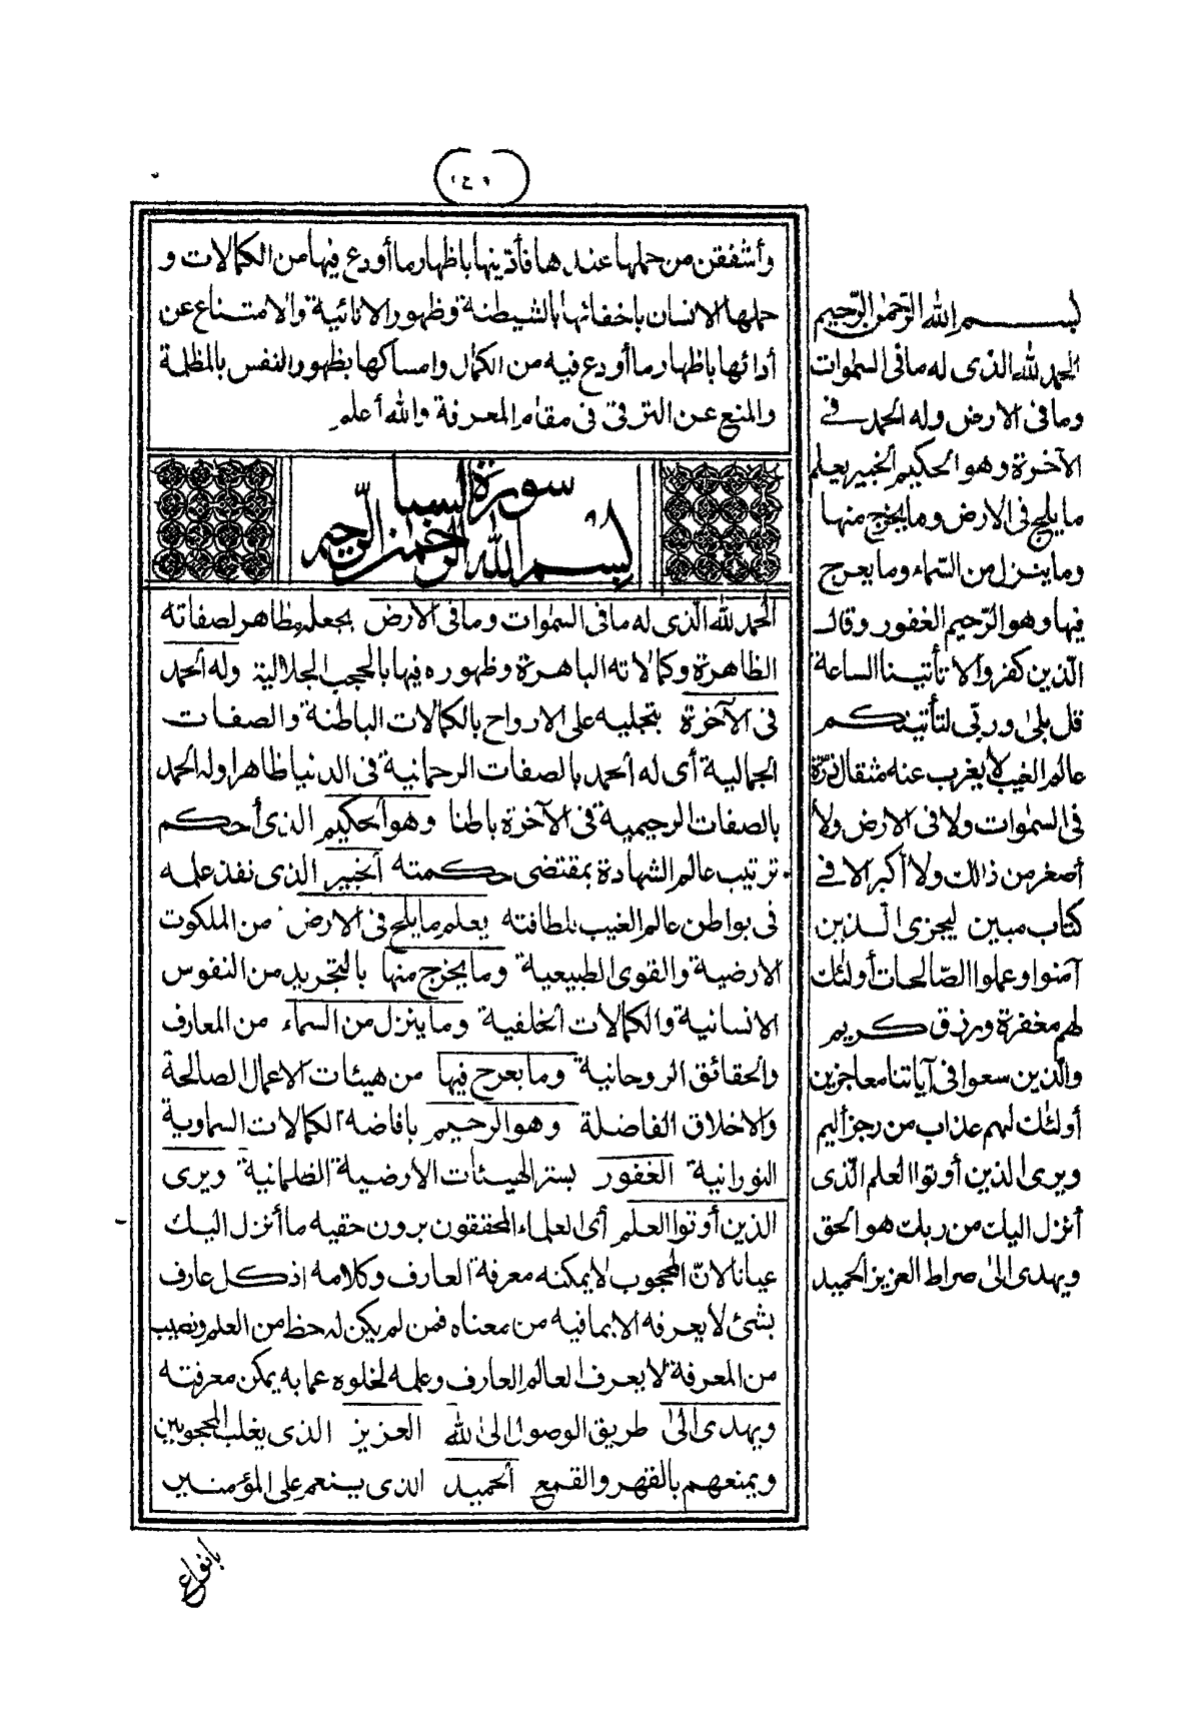 وأشفقن من حملها عندها فأذينها باظهار ما أودع فيها من الكمالات و
حملها الانسان باخفائها بالشيطنة وظهور الانائية والامتناع عن
أدائها باظهار ما أودع فيه من الكمال وامساكها بظهور النفس بالمظلمة
والمنع عن الترقى فى مقام المعرفة والله أعلم
سورة السبا
بسم الله الرحمن الرحيم
الحمد لله الذى له ما فى السمٰوات وما فى الارض بجعله مظاهر لصفاته
الظاهرة وكمالاته الباهرة وظهوره فيها بالحجب الجلالية وله الحمد
فى الآخرة بتجليه على الارواح بالكمالات الباطنة والصفات
الجمالية أى له الحمد بالصفات الرحمانية فى الدنيا ظاهرا وله الحمد
بالصفات الرحيمية فى الآخرة باطنا وهو الحكيم الذى أحكم
ترتيب عالم الشهادة بمقتضى حكمته الخبير الذى نفذ علمه
فى بواطن عالم الغيب بلطافته يعلم ما يلج فى الارض من الملكوت
الارضية والقوى الطبيعية وما يخرج منها بالتجريد من النفوس
الانسانية والكمالات الخلقية وما ينزل من السماء من المعارف
والحقائق الروحانية وما يعرج فيها من هيئات الاعمال الصالحة
والاخلاق الفاضلة وهو الرحيم بافاضة الكمالات السماوية
النورانية الغفور بستر الهيئات الأرضية الظلمانية ويرى
الذين أوتوا العلم أى العلماء المحققون يرون حقيه ما أنزل اليك
عيانا لانّ المحجوب لا يمكنه معرفة العارف وكلامه اذ كل عارف
بشئ لا يعرفه الا بما فيه من معناه فمن لم يكن له حظ من العلم ونصيب
من المعرفة لا يعرف العالم العارف وعلمه لخلوه عما به يمكن معرفته
ويهدى الىٰ طريق الوصول الى الله العزيز الذى يغلب المحجوبين
ويمنعهم بالقهر والقمع الحميد الذى ينعم على المؤمنين
بانواع
بسم الله الرّحمٰن الرّحيم
الحمد لله الذى له ما فى السمٰوات
وما فى الارض وله الحمد فى
الآخرة وهو الحكيم الخبير يعلم
ما يلج فى الارض وما يخرج منها
وما ينزل من السّماء وما يعرج
فيها وهو الرّحيم الغفور وقال
الّذين كفروا لا تأتينا الساعة
قل بلىٰ وربّى لتأتينكم
عالم الغيب لا يعزب عنه مثقال ذرّة
فى السمٰوات ولا فى الارض ولا
أصغر من ذالك ولا أكبر الا فى
كتاب مبين ليجزى الّذين
آمنوا وعملوا الصّالحات أولئك
لهم مغفرة ورزق كريم
والّذين سعوا فى آياتنا معاجزين
أولئك لهم عذاب من رجز أليم
ويرى الذين أوتوا العلم الّذى
أنزل اليك من ربك هو الحق
ويهدى الىٰ صراط العزيز الحميد